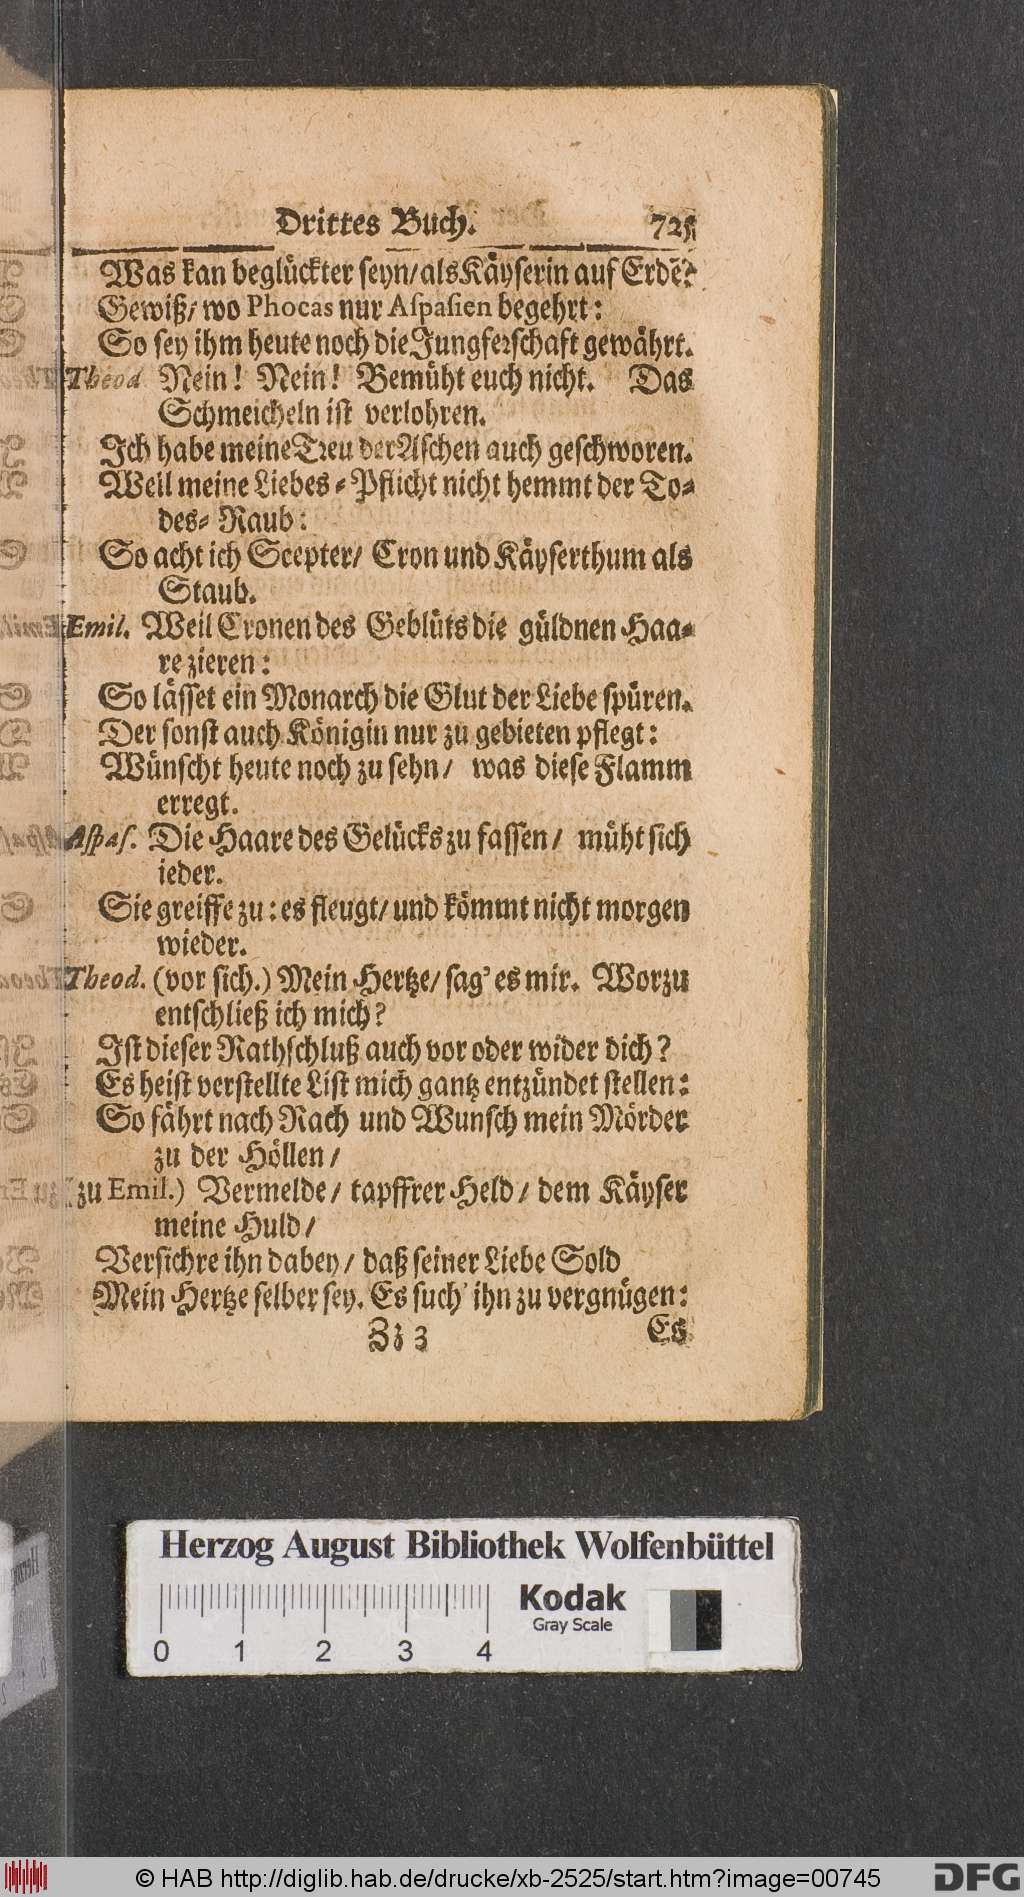 Drittes Buch. 725
Was kan beglückter seyn/ als Käyserin auf Erdē?
Gewiß/ wo Phocas nur Aſpaſien begehrt:
So sey ihm heute noch die Jungferschaft gewährt.
Theod Nein! Nein! Bemüht euch nicht. Das
Schmeicheln ist verlohren.
Ich habe meine Treu der Aschen auch geschworen.
Weil meine Liebes-Pflicht nicht hemmt der To-
des-Raub:
So acht ich Scepter/ Cron und Käyserthum als
Staub.
Emil. Weil Cronen des Geblüts die güldnen Haa-
re zieren:
So lässet ein Monarch die Glut der Liebe spüren.
Der sonst auch Königin nur zu gebieten pflegt:
Wünscht heute noch zu sehn/ was diese Flamm
erregt.
Aſpaſ. Die Haare des Gelücks zu fassen/ müht sich
ieder.
Sie greiffe zu: es fleugt/ und kömmt nicht morgen
wieder.
Theod. (vor sich.) Mein Hertze/ sag' es mir. Worzu
entschließ ich mich?
Ist dieser Rathschluß auch vor oder wider dich?
Es heist verstellte List mich gantz entzündet stellen:
So fährt nach Rach und Wunsch mein Mörder
zu der Höllen/
(zu Emil.) Vermelde/ tapffrer Held/ dem Käyser
meine Huld/
Versichre ihn dabey/ daß seiner Liebe Sold
Mein Hertze selber sey. Es such' ihn zu vergnügen:
Zz 3 Es
Herzog August Bibliothek Wolfenbüttel
Kodak
Gray Scale
0 1 2 3 4
© HAB http://diglib.hab.de/drucke/xb-2525/start.htm?image=00745
DFG